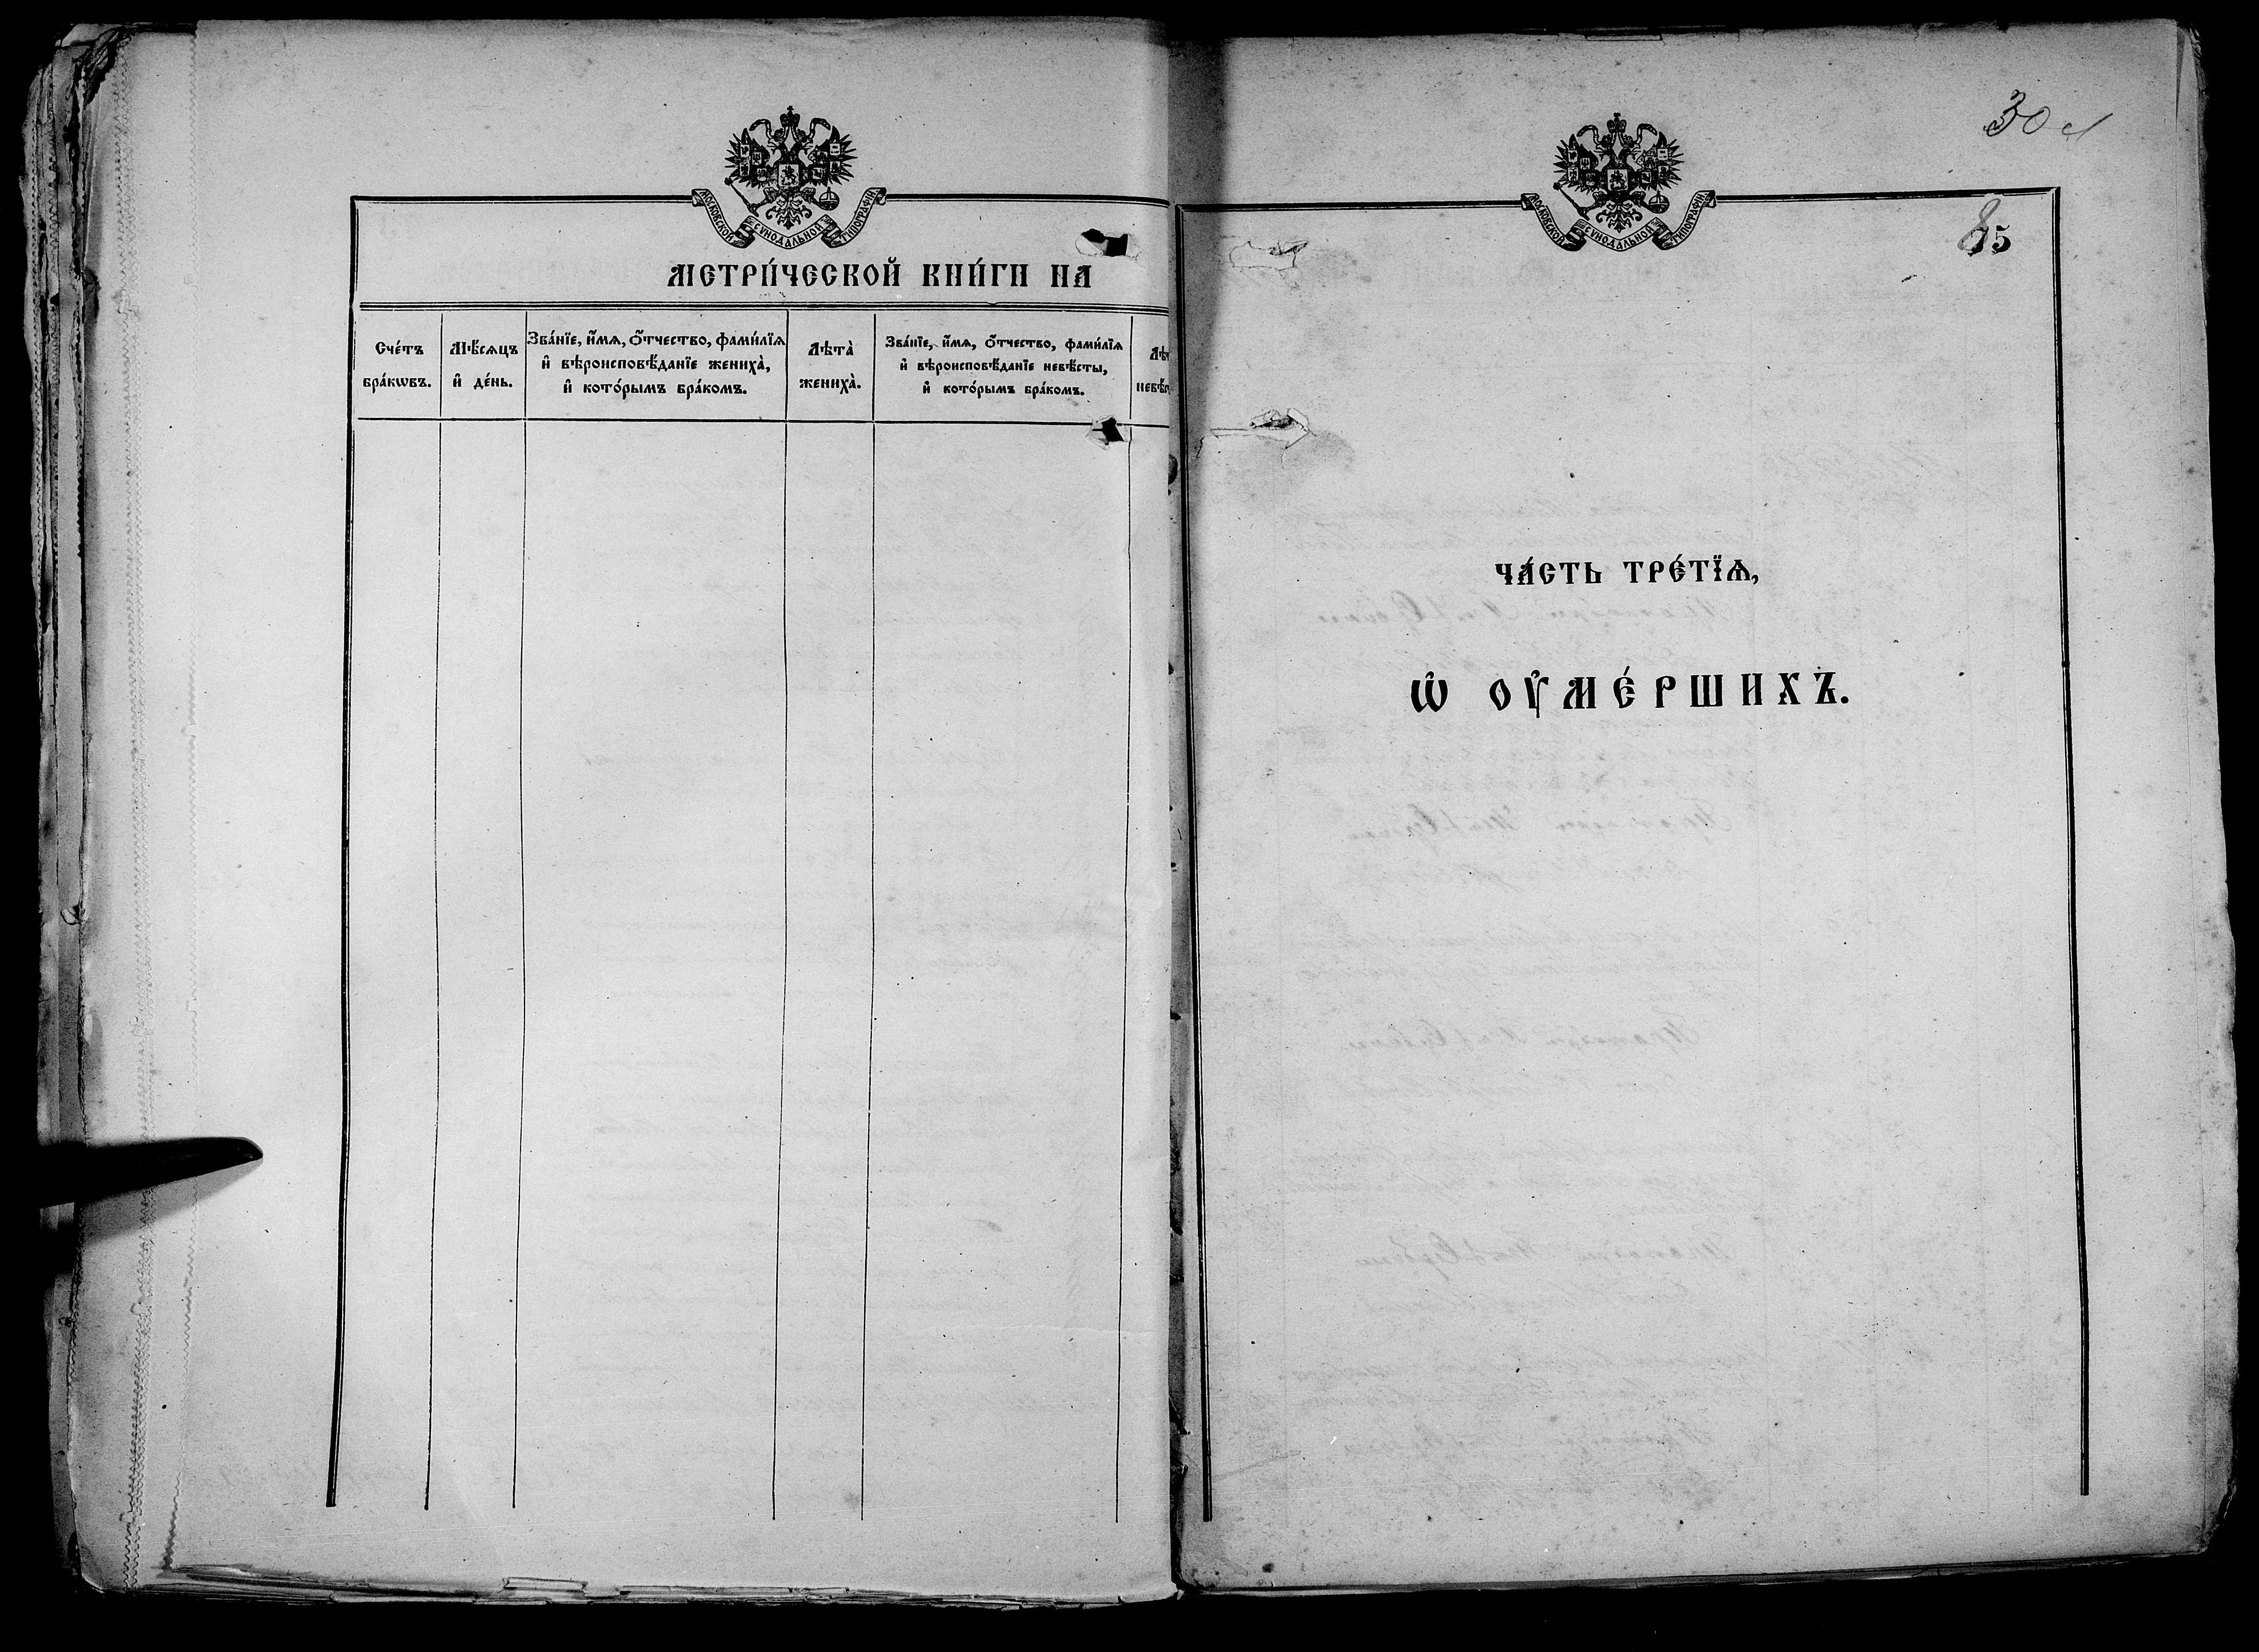 МОСКОВСКОЙ СѴНОДАЛЬНОЙ ТИПОГРАФІИ
МЕТРИ́ЧЕСКОЙ КНИ́ГИ НА
Сче́тъ
бра́кѡвъ.
Мѣ́сѧцъ
и҆ де́нь.
Зва́нїе, и҆́мѧ, ѻ҆́тчество, фами́лїѧ
и҆ вѣроисповѣ́данїе жениха̀,
и҆ кото́рымъ бра́комъ.
Лѣта̀
жениха̀.
Зва́нїе, и҆́мѧ, ѻ҆́тчество, фами́лїѧ
и҆ вѣроисповѣ́данїе невѣ́сты,
и҆ кото́рымъ бра́комъ.
Лѣ
невѣ́
30
МОСКОВСКОЙ СѴНОДАЛЬНОЙ ТИПОГРАФІИ
85
ЧА́СТЬ ТРЕ́ТЇѦ,
Ѡ҆ ОУ҆МЕ́РШИХЪ.